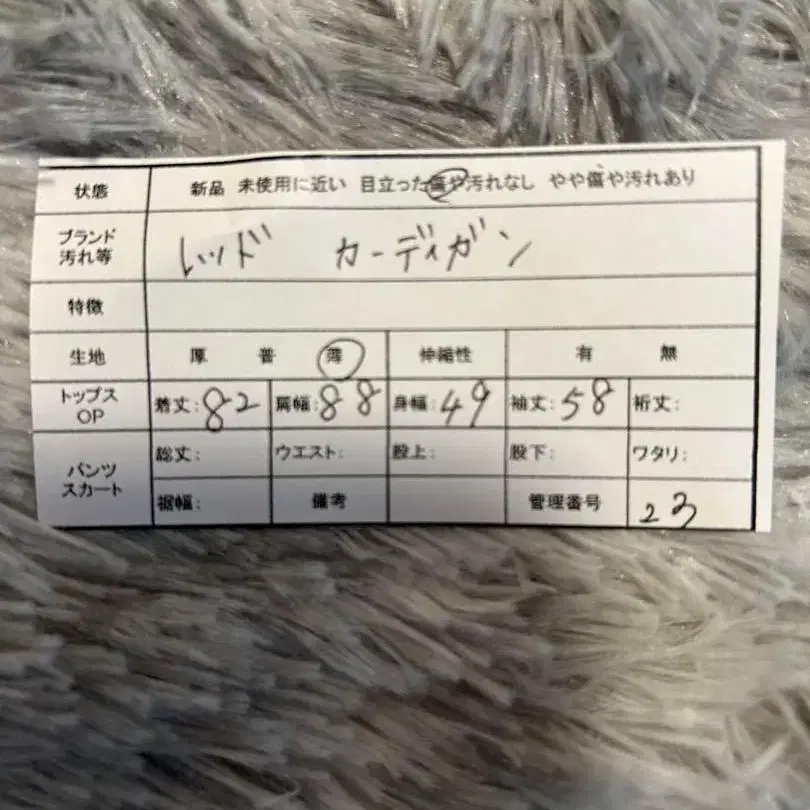 状態 新品 未使用に近い 目立った傷や汚れなし やや傷や汚れあり
ブランド
汚れ等 レッド カーディガン
特徴
生地 厚 普 薄 伸縮性 有 無
トップス
OP 着丈:82 肩幅:88 身幅:49 袖丈:58 裄丈:
パンツ
スカート 総丈: ウエスト: 股上: 股下: ワタリ:
裾幅: 備考 管理番号 23